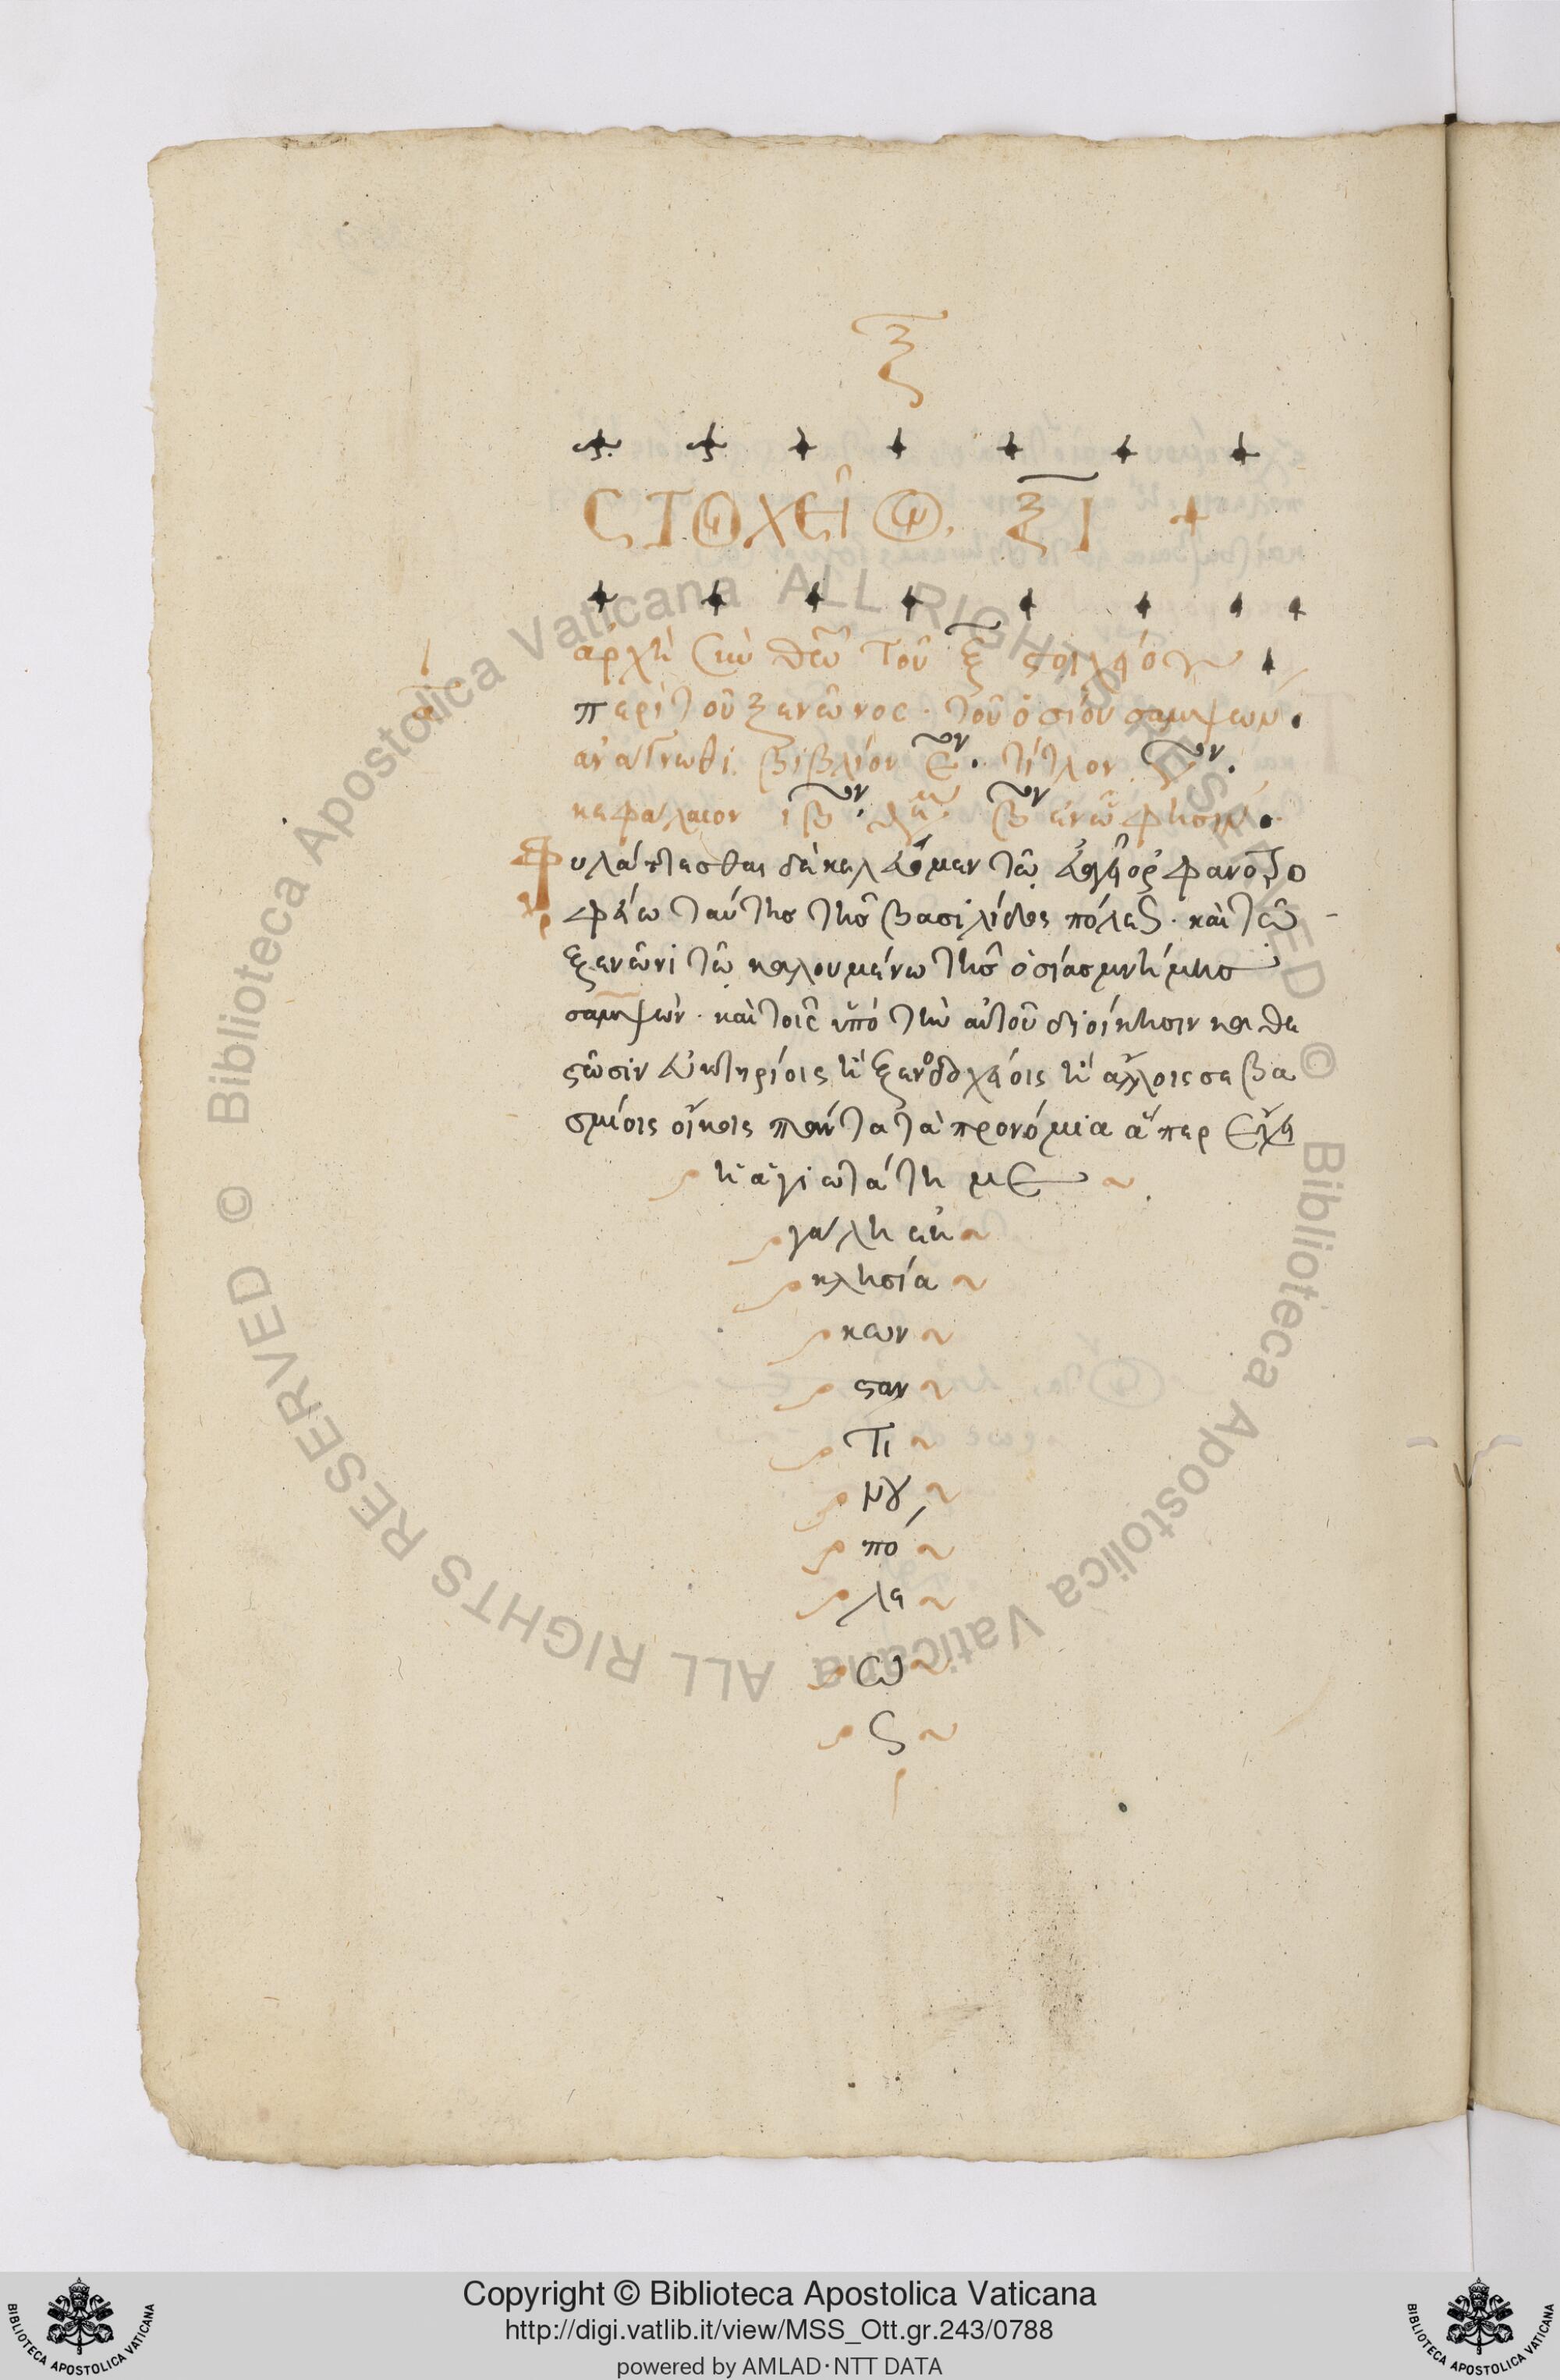 ξ
ΣΤΟΙΧΕῖΟΝ ξ
ἀρχὴ σὺν θεῶ τοῦ ξ στοιχείου
α
περὶ τοῦ ξενῶνος · τοῦ ὁσίου σαμψών ·
ἀνάγνωθι βιβλίον ε ον · τίτλον
κεφάλαιον ιβ ον · θεμ β ον ἐν ὧ φησιν ·
Φυλάττεσθαι δὲ κελεύομεν τῶ εὐαγεῖ ὀρφανοτρο
φείω ταύτης τῆς βασιλίδος πόλεως · καὶ τῶ
ξενῶνι τῶ καλουμένω τῆς ὁσίας μνήμης
σαμψών · καὶ τοῖς ὑπὸ τὴν αὐτοῦ διοίκησιν καθε
στῶσιν εὐκτηρίοις ἢ ξενοδοχείοις ἢ ἄλλοις σεβα
σμίοις οἴκοις πάντα τὰ προνόμια ἅπερ ἔχει
ἡ ἁγιωτάτη με
γάλη ἐκ
κλησία
κων
σταν
τι
νου
πό
λε
ω
ς
Copyright © Biblioteca Apostolica Vaticana
http://digi.vatlib.it/view/MSS_Ott.gr.243/0788
powered by AMLAD·NTT DATA
BIBLIOTECA APOSTOLICA VATICANA
BIBLIOTECA APOSTOLICA VATICANA
© Biblioteca Apostolica Vaticana ALL RIGHTS RESERVED © Biblioteca Apostolica Vaticana ALL RIGHTS RESERVED